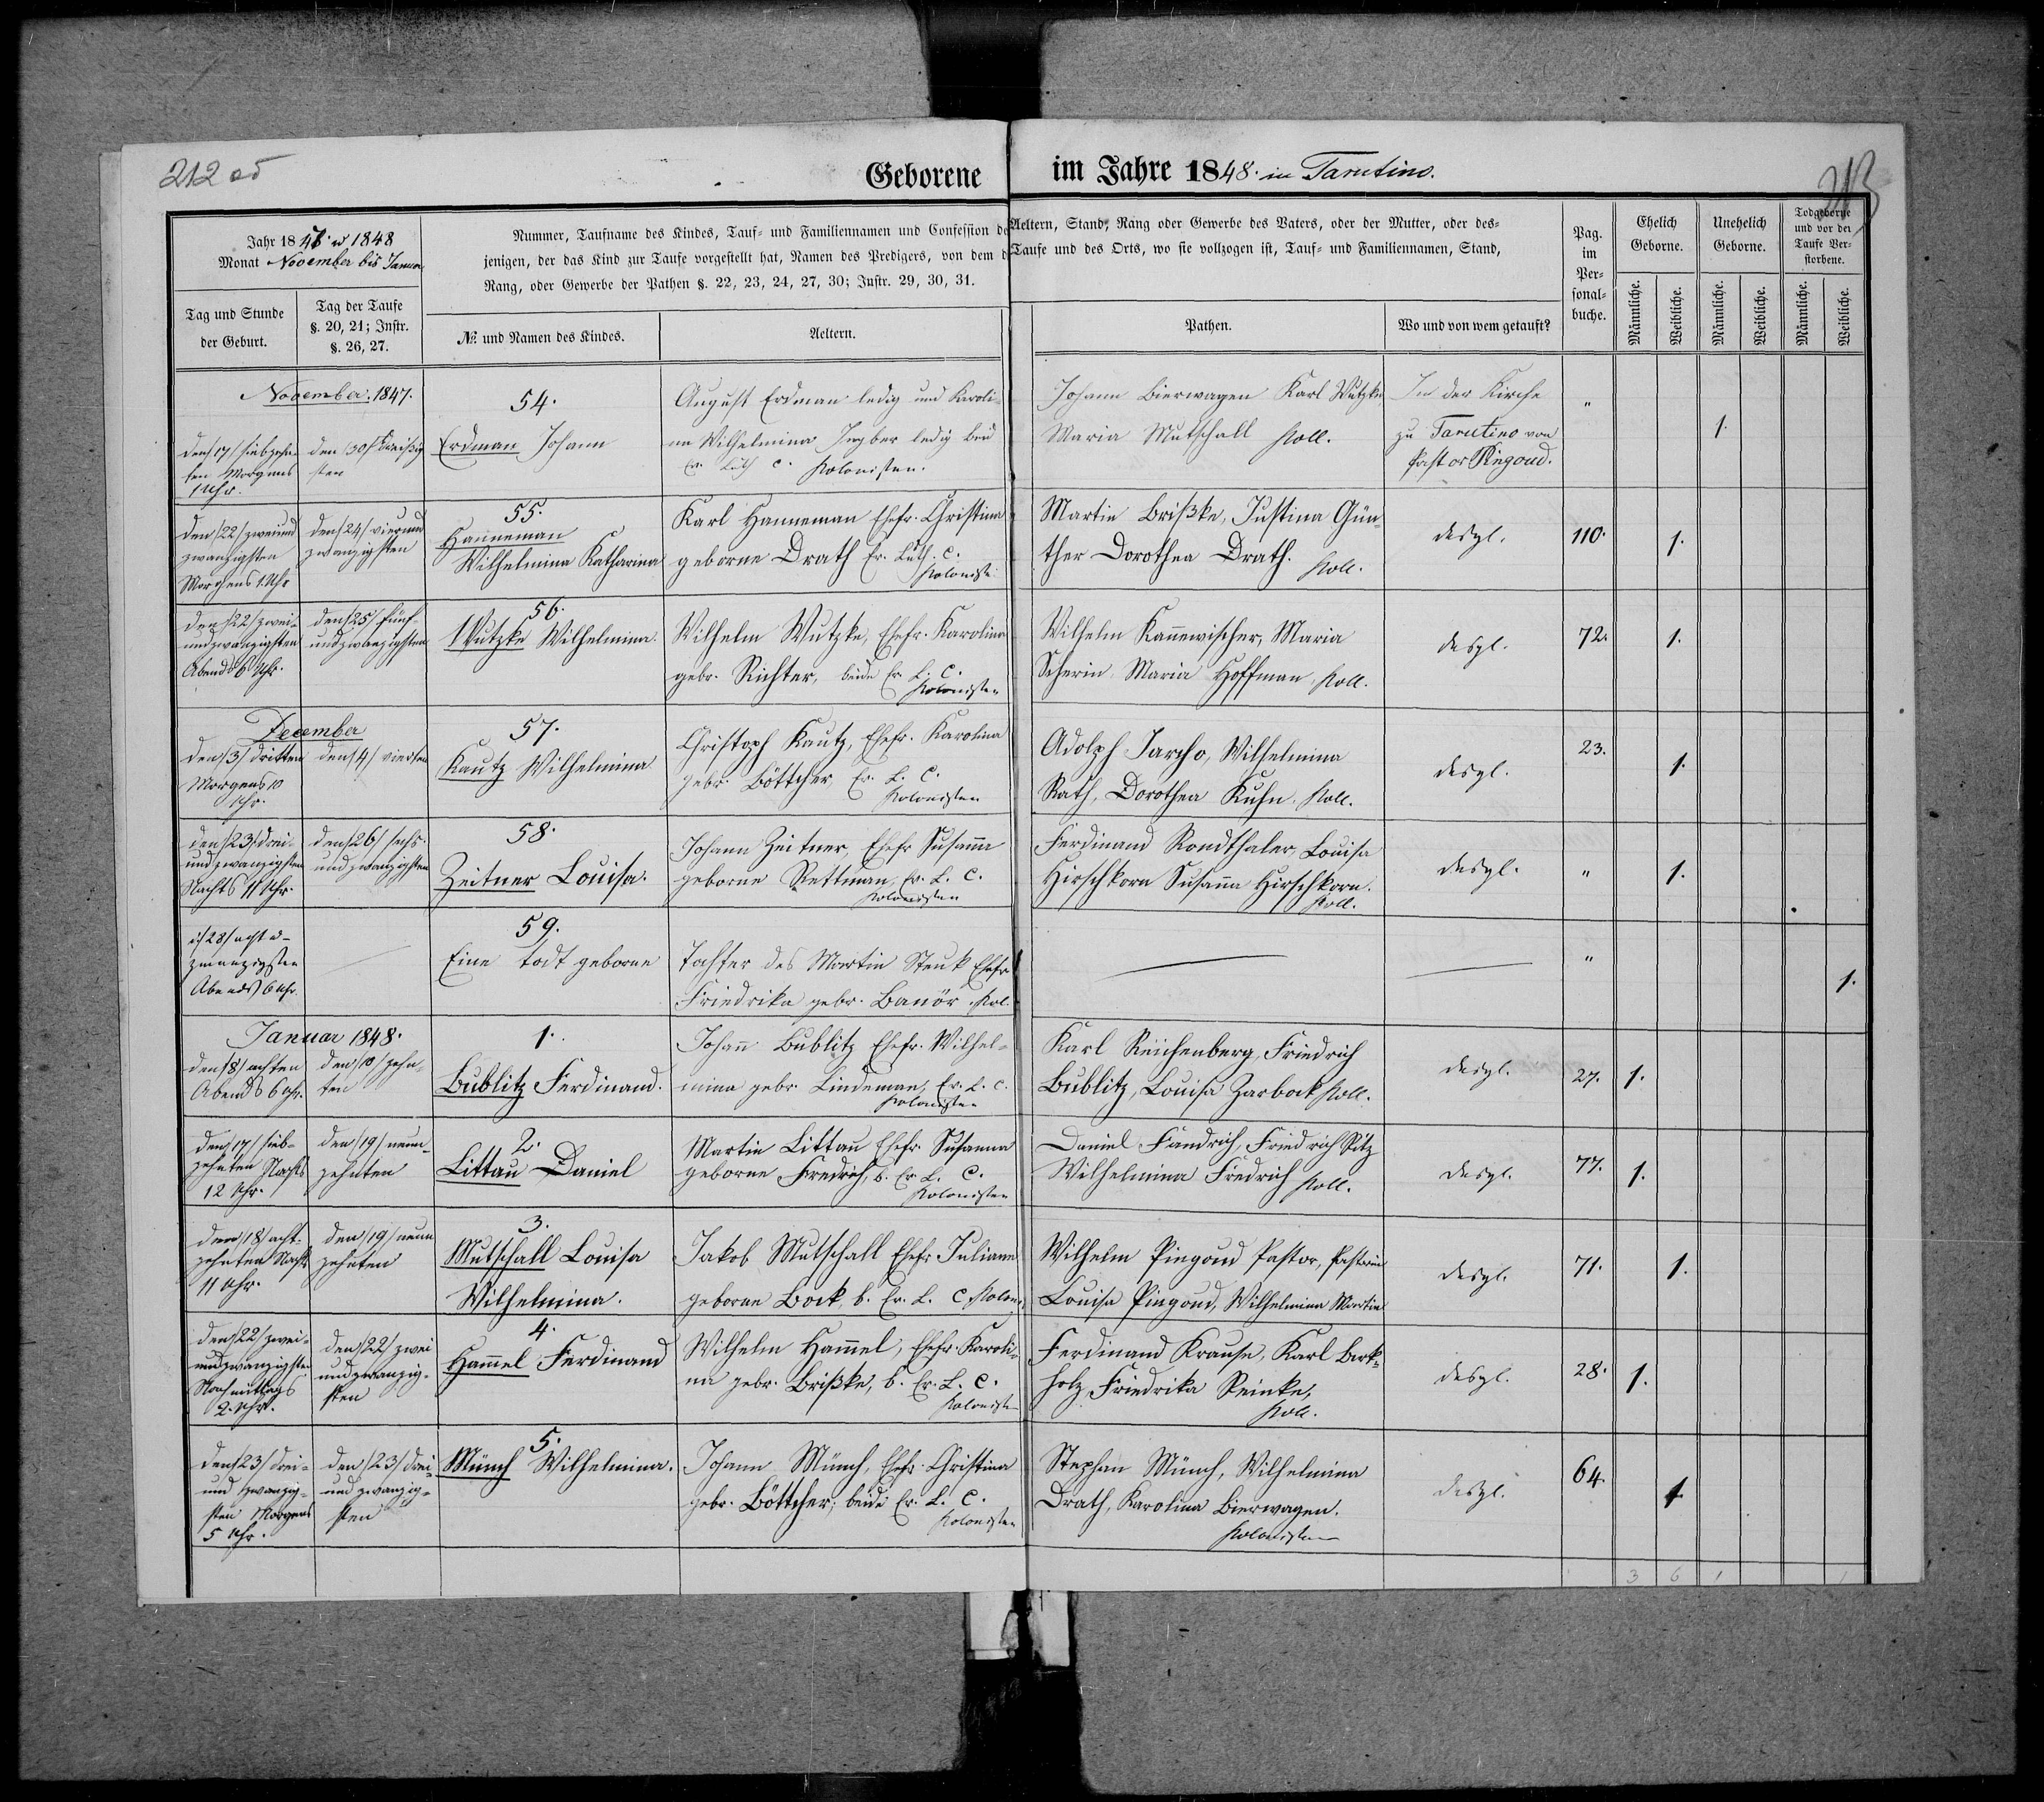 212 об
213
Geborene im Jahre 1848. in Tarutino.
Jahr 1847. u 1848
Monat November bis Januar
Tag und Stunde der Geburt.
Tag der Taufe §. 20, 21; Instr. §. 26, 27.
Nummer, Taufname des Kindes, Tauf- und Familiennamen und Confession de Aeltern, Stand, Rang oder Gewerbe des Vaters, oder der Mutter, oder des-
jenigen, der das Kind zur Taufe vorgestellt hat, Namen des Predigers, von dem d Taufe und des Orts, wo sie vollzogen ist, Tauf- und Familiennamen, Stand,
Rang, oder Gewerbe der Pathen §. 22, 23, 24, 27, 30; Instr. 29, 30, 31.
№ und Namen des Kindes.
Aeltern.
Pathen.
Wo und von wem getauft?
Pag. im Per-sonal-buche.
Ehelich Geborne.
Unehelich Geborne.
Todgeborne und vor der Taufe Ver-storbene.
Männliche.
Weibliche.
Männliche.
Weibliche.
Männliche.
Weibliche.
November. 1847.
den /17/ siebzehn-
ten Morgens
1 Uhr.
den /30/ dreißig
sten
54.
Erdman Johann
August Erdman ledig und Karoli-
na Wilhelmina Ingber ledig beid
Ev. Luth c. Kolonisten.
Johann Bierwagen Karl Wutzke
Maria Mutschall Koll.
In der Kirche
zu Tarutino von
Pastor Pingoud.
"
1.
den /22/ zweiund
zwanzigsten
Morgens 1. Uhr
den /24/ vierund
zwanzigsten
55.
Hanneman
Wilhelmina Katharina
Karl Hanneman Ehefr. Christina
geborne Drath Ev. Luth. C.
Koloniste
Martin Brißke, Justina Gün-
ther Dorothea Drath. Koll.
desgl.
110.
1.
den /22/ zwei-
undzwanzigsten
Abends 6 Uhr.
den /25/ fünf-
undzwanzigsten
56.
Wutzke Wilhelmina.
Wilhelm Wutzke, Ehefr. Karolina
gebr. Richter, beide Ev. L. C.
Kolonisten
Wilhelm Kannewischer, Maria
Scherin Maria Hoffman, Koll.
desgl.
72.
1.
December
den /3/ dritten
Morgens 10
Uhr.
den /4/ vierten
57.
Kautz Wilhelmina
Christoph Kautz, Ehefr. Karolina
gebr. Böttcher, Ev. L. C.
Kolonisten
Adolph Jarcho, Wilhelmina
Rath, Dorothea Kuhn. Koll.
desgl.
23.
1.
den /23/ drei-
undzwanzigsten
Nachts 11 Uhr.
den /26/ sechs-
undzwanzigsten
58.
Zeitner Louisa.
Johann Zeitner, Ehefr Susanna
geborne Rettman, Ev. L. C.
Kolonisten
Ferdinand Rondthaler, Louisa
Hirschkorn Susanna Hirschkorn.
Koll.
desgl.
"
1.
d /28/ acht u-
zwanzigsten
Abends 6 Uhr.
59.
Eine todt geborne
Tochter des Martin Steuk Ehefr
Friedrika gebr. Banör. Kol.
"
1.
Januar 1848.
den /8/ achten
Abends 6 Uhr.
den /10/ zehn-
ten
1.
Bublitz Ferdinand.
Johann Bublitz Ehefr. Wilhel-
mina gebr. Lindeman, Ev. L. C.
Kolonisten
Karl Reichenberg, Friedrich
Bublitz, Louisa Zarbock Koll.
desgl.
27.
1.
den /17/ sieb-
zehnten Nachts
12 Uhr.
den /19/ neun-
zehnten
2.
Littau Daniel
Martin Littau Ehefr. Susanna
geborne Fredrich, b. Ev. L. C.
Kolonisten
Daniel Fandrich, Friedrich Pitz
Wilhelmina Friedrich Koll.
desgl.
77.
1.
den /18/ acht-
zehnten Nachts
11 Uhr.
den /19/ neun
zehnten
3.
Mutschall Louisa
Wilhelmina.
Jakob Mutschall Ehefr. Juliana
geborne Bock, b. Ev. L. C Kolon.
Wilhelm Pingoud Pastor, Pastorin
Louisa Pingoud, Wilhelmina Martin
desgl.
71.
1.
den /22/ zwei-
undzwanzigsten
Nachmittags
2. Uhr.
den /22/ zwei
undzwanzig-
sten
4.
Hammel Ferdinand
Wilhelm Hammel, Ehefr. Karoli-
na gebr. Brißke, b. Ev. L. C.
Koloniste
Ferdinand Krause, Karl Birk-
holz Friedrika Reinke,
Koll.
desgl.
28.
1.
den /23/ drei-
und zwanzig-
sten Morgens
5 Uhr.
den /23/ drei-
und zwanzig-
sten
5.
Münch Wilhelmina.
Johann Münch, Ehefr. Christina
gebr. Böttcher, beide Ev. L. C.
Kolonisten
Stephan Münch, Wilhelmina
Drath, Karolina Bierwagen.
Kolonisten
desgl.
64.
1
3 6 1 1